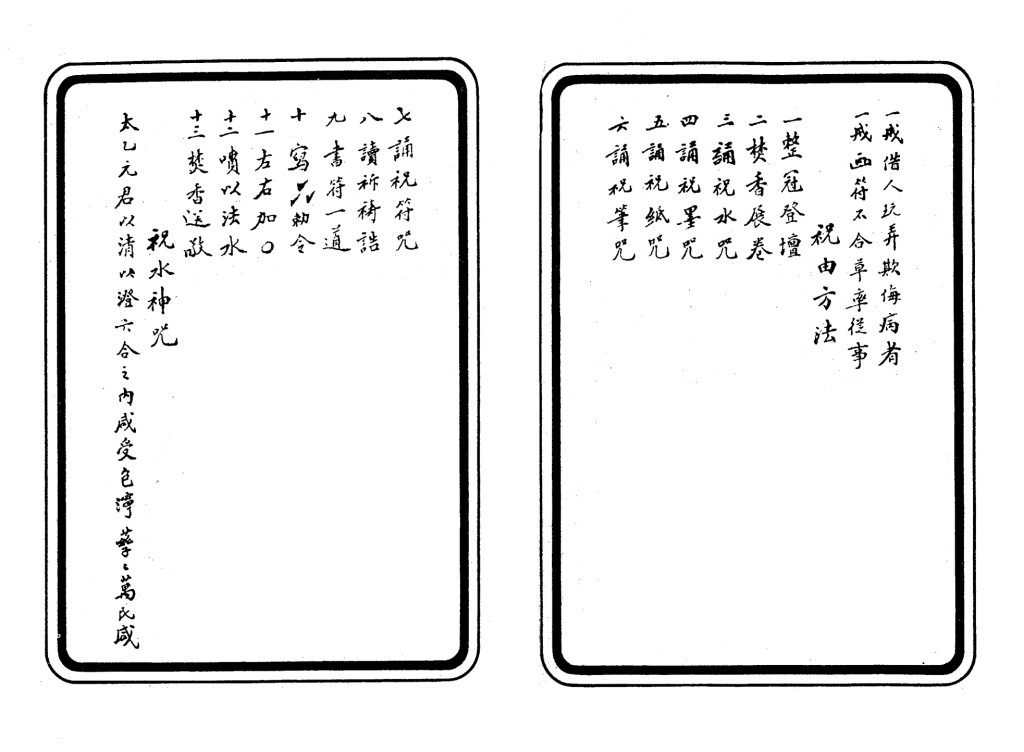 一戒借人玩弄欺侮病者
一戒画符不合草率從事
祝由方法
一整冠登壇
二焚香展卷
三誦祝水咒
四誦祝墨咒
五誦祝紙咒
六誦祝筆咒
七誦祝符咒
八讀祈禱誥
九書符一道
十寫勅令
十一右右加〇
十二噴以法水
十三焚香送
祝水神咒
太乙元君以清以澄六合之內咸受包萬民咸